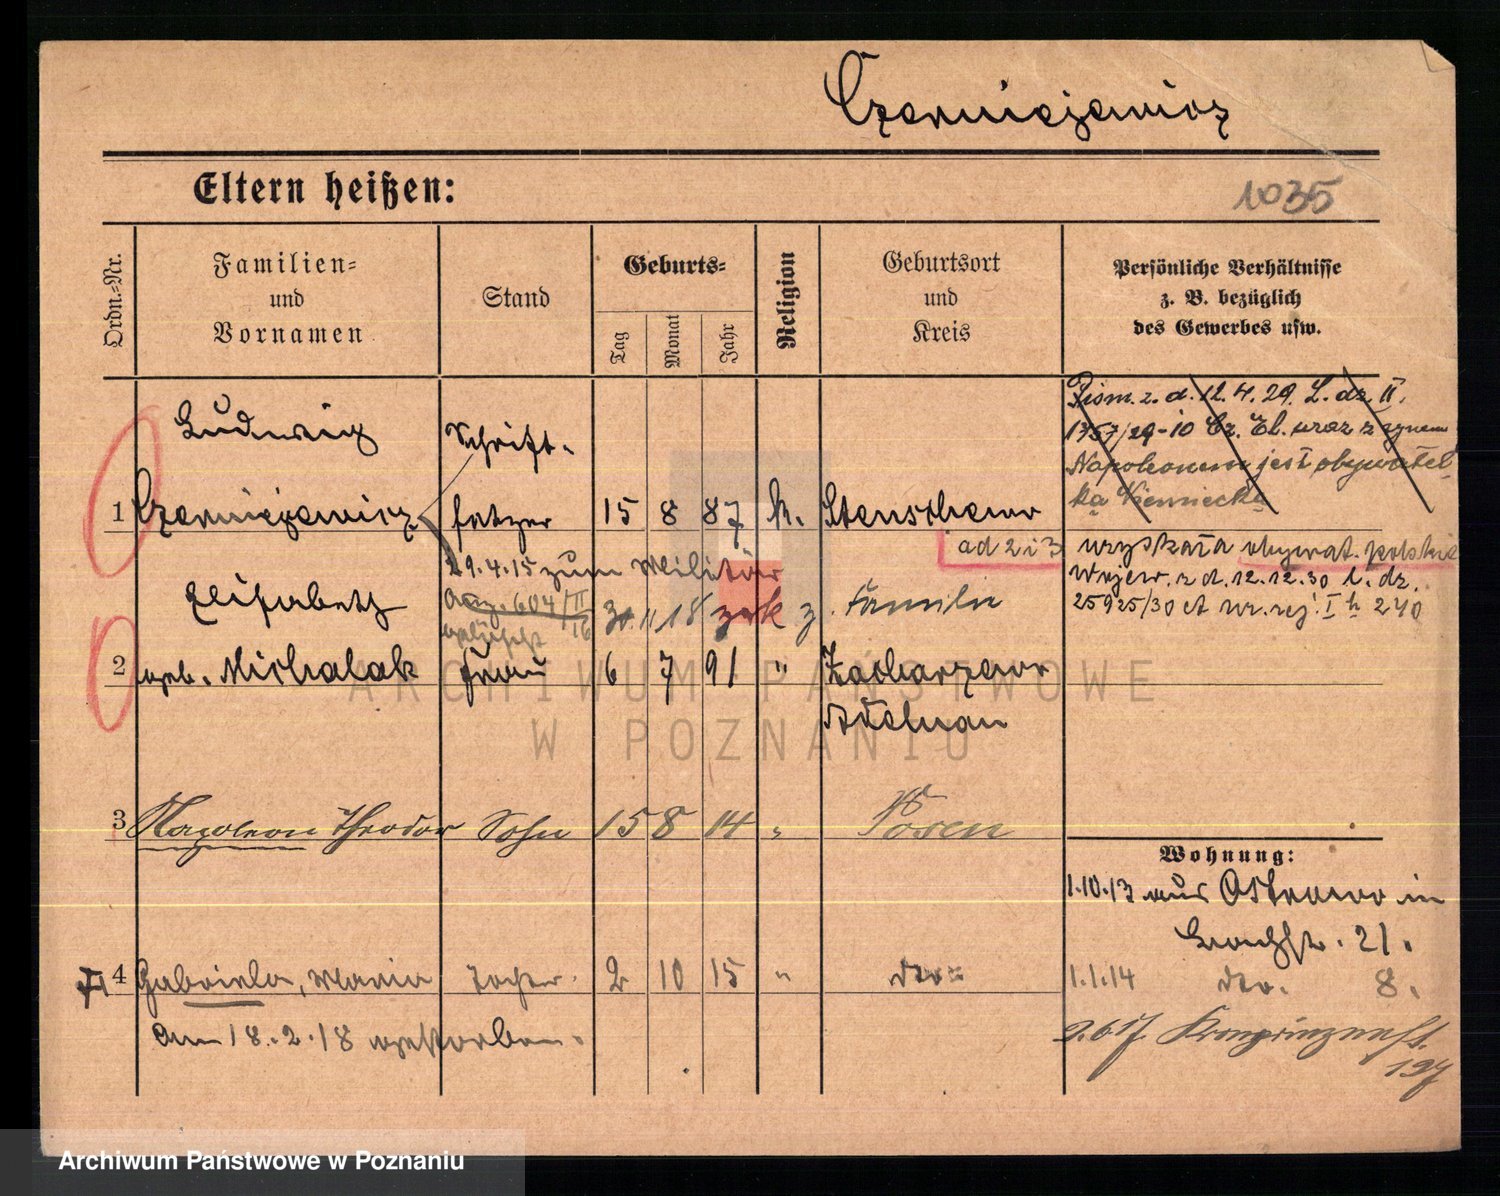 Czerniejewicz
Eltern heißen:
1035
Ordn.-Nr.
Familien-
und
Vornamen
Stand
Geburts-
Tag
Monat
Jahr
Religion
Geburtsort
und
Kreis
Persönliche Verhältnisse
z. B. bezüglich
des Gewerbes usw.
Pism. z. d. 12.4.29. L. dz. II.
1357/29-10 Cz. El. wraz z synem
Napoleonem jest obywatel-
ką Niemiecką
Ludwig
Schrift-
1 Czerniejewicz setzer 15 8 87 k. Stenschewo
ad 2 i 3 uzyskała obywat. polskie
29.4.15 zum Militär
Wojew. z d. 12.12.30 l. dz.
25925/30 et nr. rej. I h 240
Elisabeth
604/II 16
30.11.18 zrk z. Familie
2 geb. Michalak Frau 6 7 91 " Zacharzewo
Adelnau
3 Napoleon Theodor Sohn 15 8 14 " Posen
Wohnung:
1.10.13 aus Ostrowo in
21.
4 Gabriela, Maria Tochter 2 10 15 " dto
1.1.14 dto. 8.
am 18.2.18 verstorben.
9.6.17. Kronprinzenst.
197
ARCHIWUM PAŃSTWOWE
W POZNANIU
Archiwum Państwowe w Poznaniu